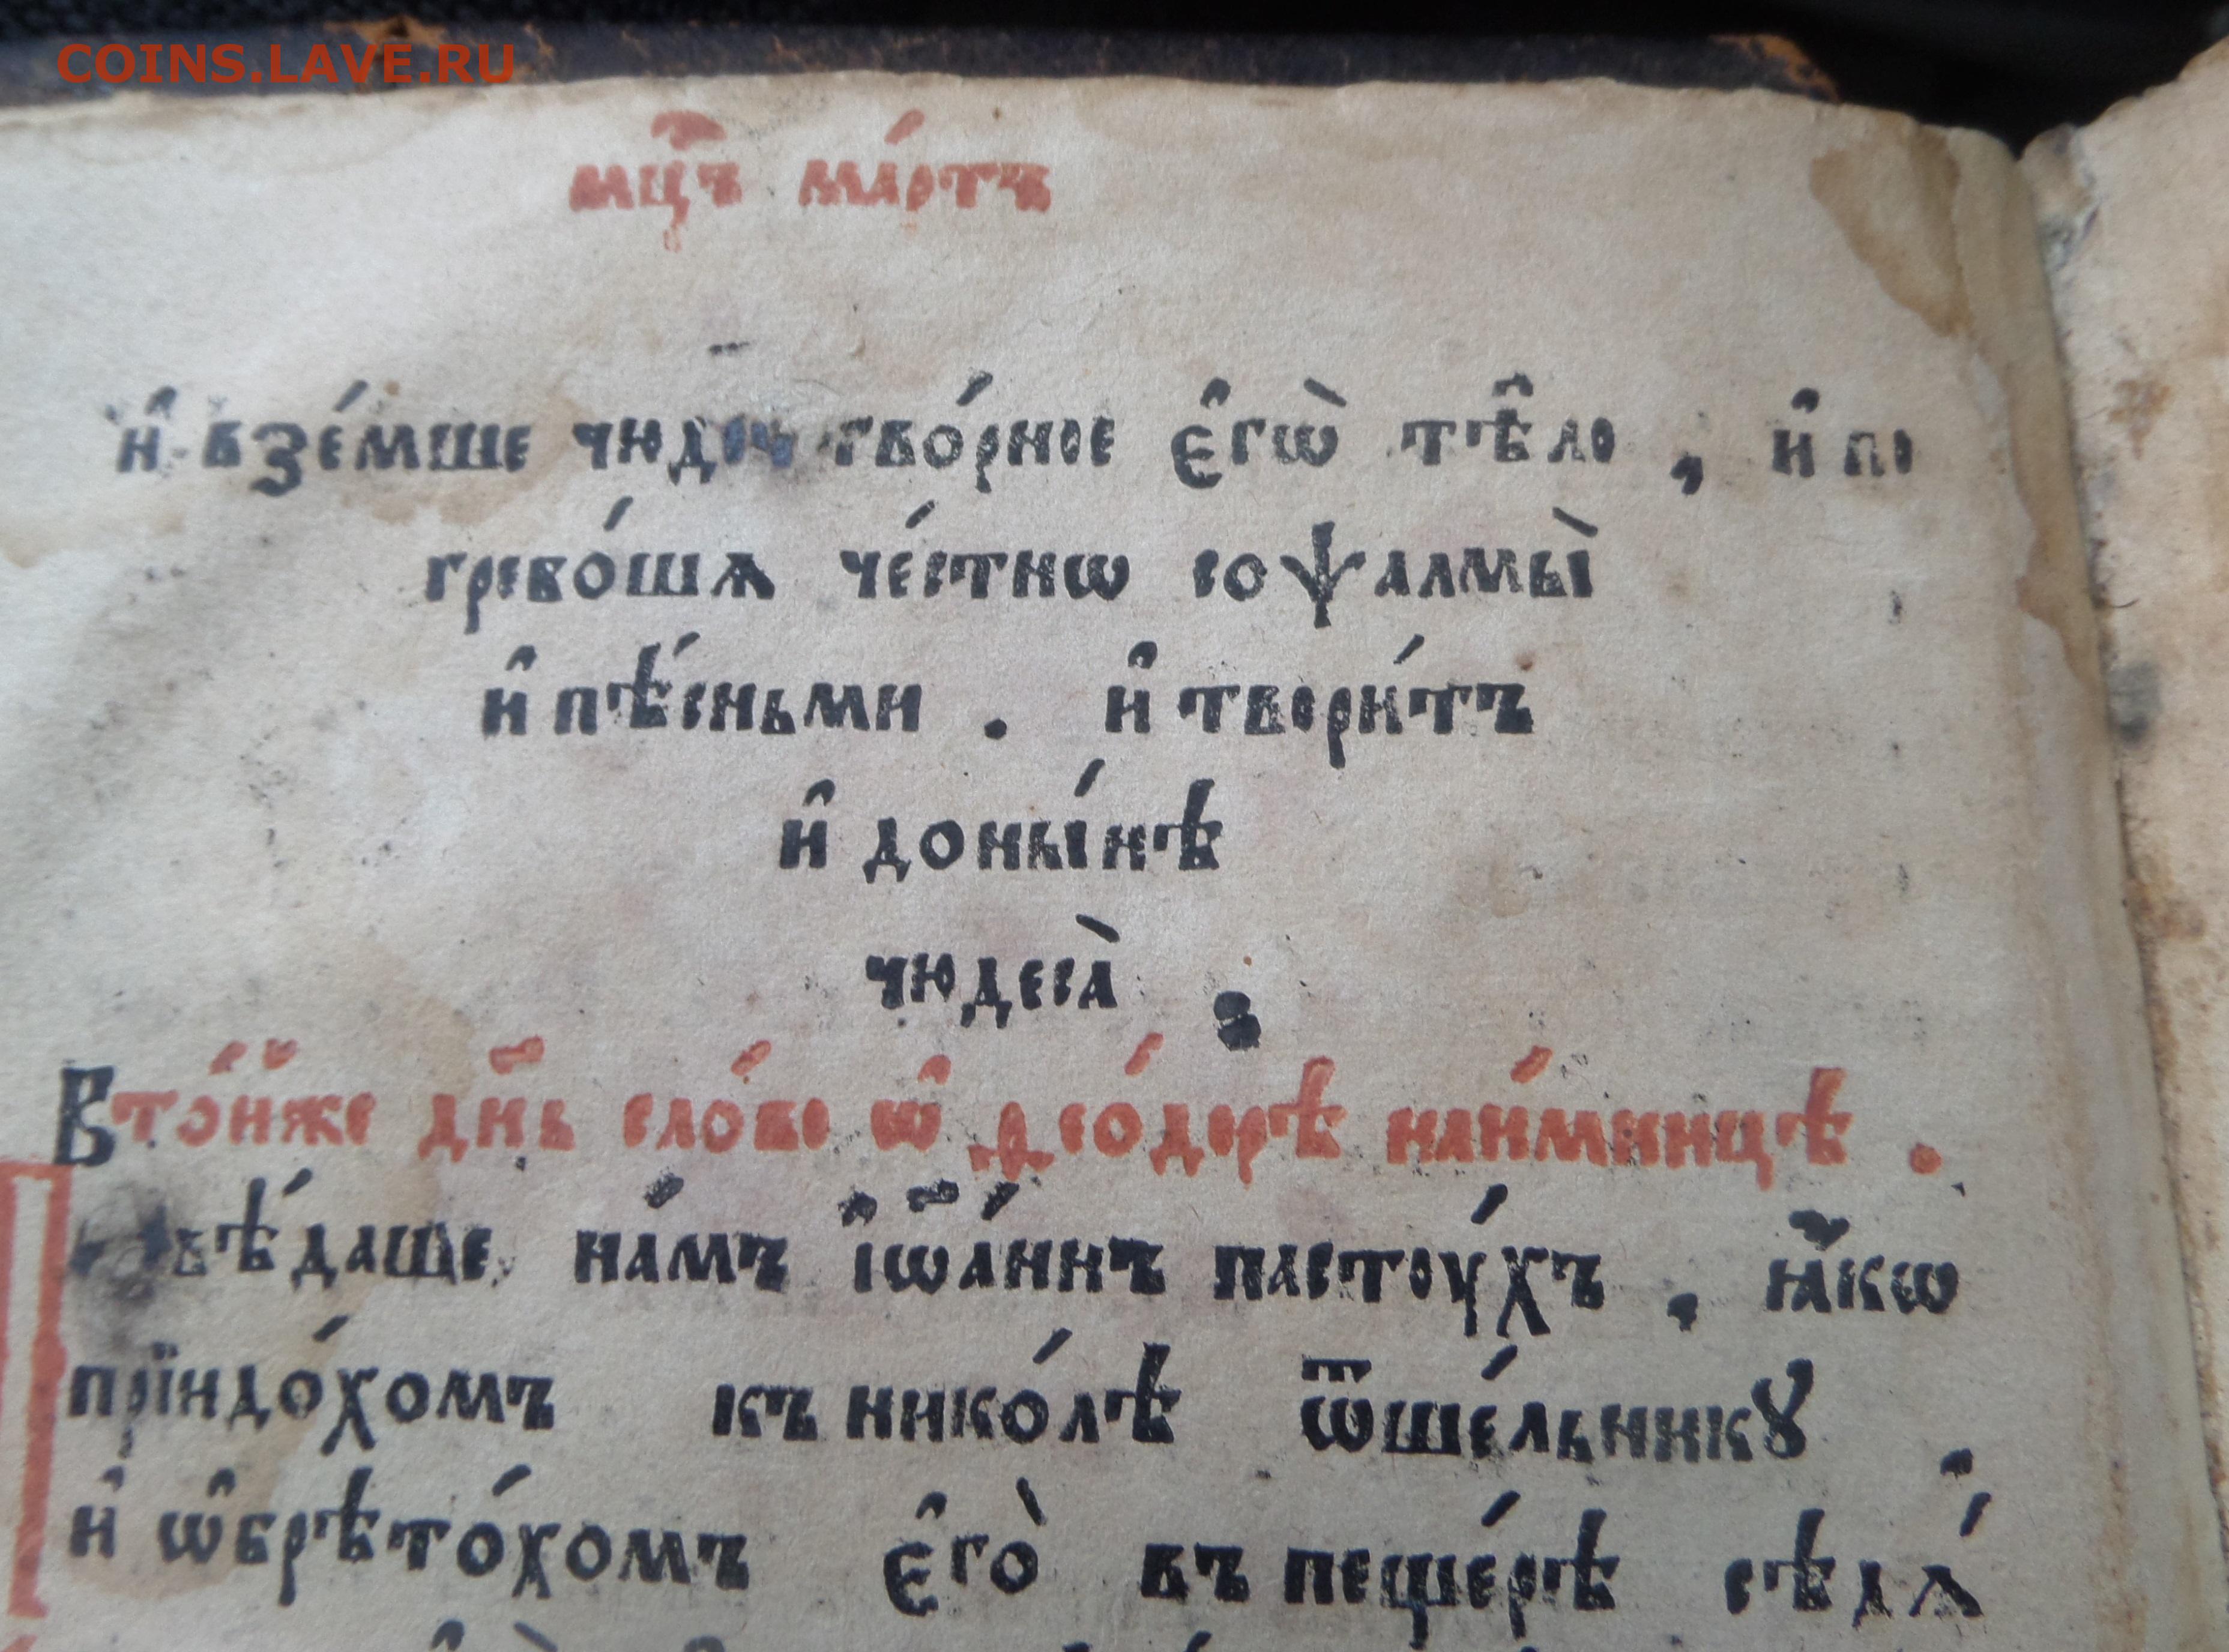 COINS.LAVE.RU
мц҃ъ ма́ртъ
и҆ взе́мше чюдотво́рное є҆гѡ̀ тѣ̑ло , и҆ по
гребо́шѧ че́стнѡ со ѱалмы̀
и҆ пѣ́сньми . и҆ твори́тъ
и҆ доны́нѣ
чюдеса̀
В то́йже дн҃ь сло́во ѡ҆ ѳео́дорѣ наи́мницѣ .
Повѣ́даше на́мъ і҆ѡа́ннъ пастоу́хъ , ꙗ҆́кѡ
прїидо́хомъ къ нико́лѣ ѿше́льникꙋ ,
и҆ ѡ҆брѣто́хомъ є҆го̀ въ пеще́рѣ сѣдѧ́